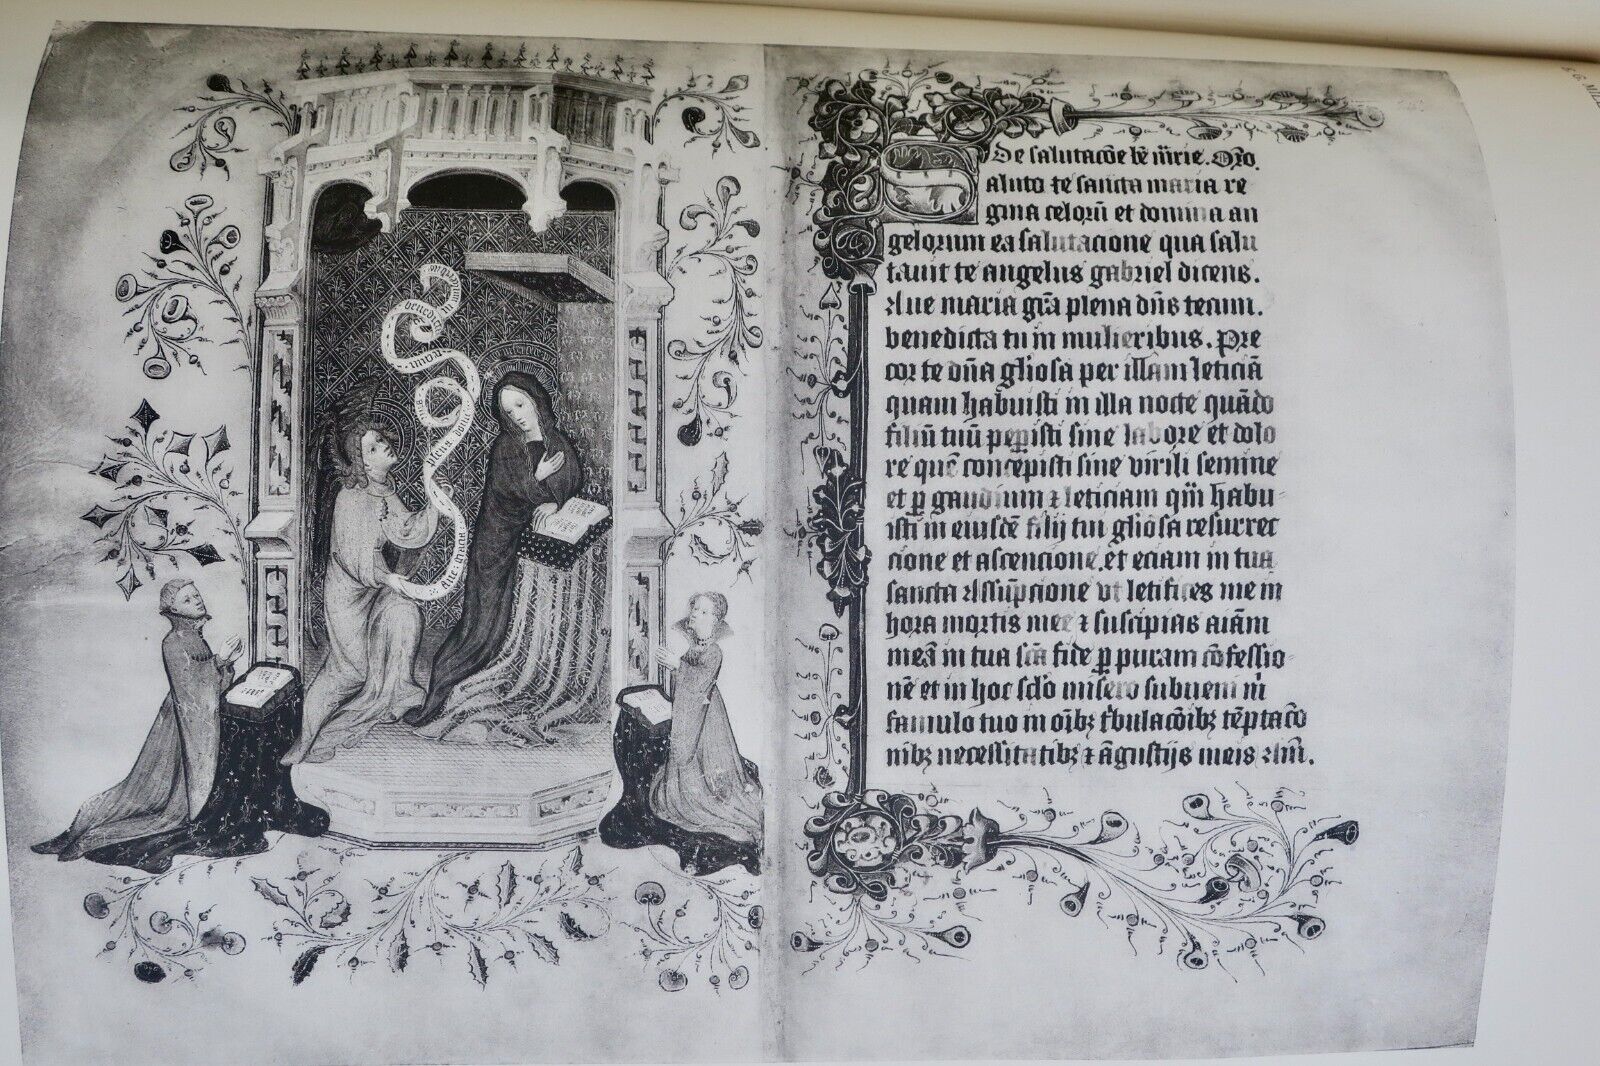 Aue maria
plena
benedicta tu in mulieribus
De salutacōe bē m̄rie. Orō.
Saluto te sancta maria re
gina celorū et domina an
gelorum ea salutacione qua salu
tauit te angelus gabriel dicens.
Aue maria grā plena dn̄s tecum.
benedicta tu in mulieribus. Pre
cor te dn̄a gliosa per illam leticiā
quam habuisti in illa nocte quādo
filiū tuū pepisti sine labore et dolo
re quē concepisti sine virili semine
et p gaudium ⁊ leticiam qm̄ habu
isti in eiusdē filij tui gliosa resurrec
cione et ascencione. et eciam in tua
sancta Assūpcione vt letifices me in
hora mortis mee ⁊ suscipias aīam
meā in tua scā fide p puram cōfessio
nē et in hoc sclō misero subueni m̄
famulo tuo in oībꝫ tbulacōibꝫ tēptacō
nibꝫ necessitatibꝫ ⁊ āgustijs meis Am̄.